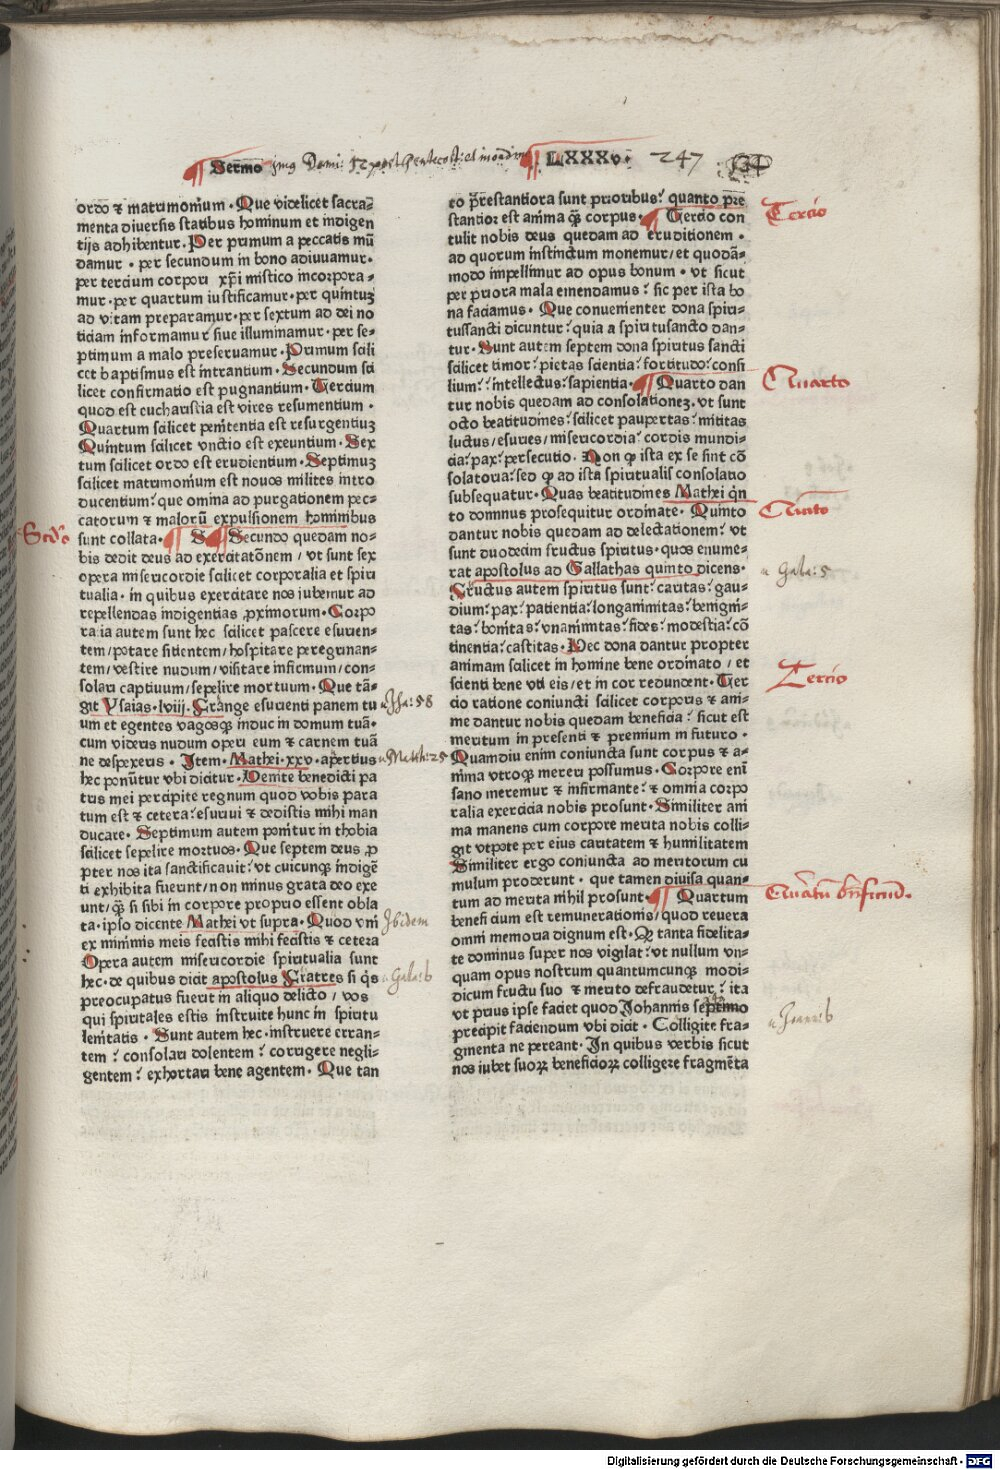 Sermo LXXXV. 247 134
ordo ⁊ matrimoniū. Que videlicet sacra-
menta diuersis statibus hominum et indigen
tijs adhibentur. Per primum a peccatis mū
damur. per secundum in bono adiuuamur.
per tercium corpori xp̄i mistico incorpora-
mur. per quartum iustificamur. per quintuꝫ
ad vitam preparamur. per sextum ad dei no
ticiam informamur siue illuminamur. per se-
ptimum a malo preseruamur. Primum scili
cet baptismus est intrantium. Secundum sci
licet confirmatio est pugnantium. Tercium
quod est eucharistia est vires resumentium.
Quartum scilicet penitentia est resurgentiuꝫ
Quintum scilicet vnctio est exeuntium. Sex
tum scilicet ordo est erudientium. Septimuꝫ
scilicet matrimonium est nouos milites intro
ducentium: que omnia ad purgationem pec-
catorum ⁊ malorū expulsionem hominibus
sunt collata. Secundo quedam no-
bis dedit deus ad exercitatōnem / vt sunt sex
opera misericordie scilicet corporalia et spiri
tualia. in quibus exercitare nos iubemur ad
repellendas indigentias ꝓximorum. Corpo
ralia autem sunt hec scilicet pascere esurien-
tem / potare sitientem / hospitare peregrinan-
tem / vestire nudum / visitare infirmum / con-
solari captiuum / sepelire mortuum. Que tā-
git Ysaias. lviij. Frange esurienti panem tu
um et egentes vagosqꝫ induc in domum tuā.
cum videris nudum operi eum ⁊ carnem tuā
ne despexeris. Item. Mathei. xxv. apertius
hec ponūtur vbi dicitur. Venite benedicti pa
tris mei percipite regnum quod vobis para
tum est ⁊ cetera: esuriui ⁊ dedistis mihi man
ducare. Septimum autem ponitur in thobia
scilicet sepelire mortuos. Que septem deus ꝓ
pter nos ita sanctificauit: vt cuicunqꝫ indigē
ti exhibita fuerint / non minus grata deo exe
unt / qꝫ si sibi in corpore proprio essent obla
ta. ipso dicente Mathei vt supra. Quod vni
ex minimis meis fecistis mihi fecistis ⁊ cetera
Opera autem misericordie spiritualia sunt
hec. de quibus dicit apostolus Fratres si q̇s
preocupatus fuerit in aliquo delicto / vos
qui spiritales estis instruite hunc in spiritu
lenitatis. Sunt autem hec. instruere erran-
tem: consolari dolentem: corrigere negli-
gentem: exhortari bene agentem. Que tan
to p̄restantiora sunt prioribus: quanto pre
stantior est anima qꝫ corpus. Tercio con
tulit nobis deus quedam ad eruditionem.
ad quorum instinctum monemur / et quodā-
modo impellimur ad opus bonum. vt sicut
per priora mala emendamus: sic per ista bo
na faciamus. Que conuenienter dona spiri-
tussancti dicuntur: quia a spiritusancto dan-
tur. Sunt autem septem dona spiritus sancti
scilicet timor: pietas scientia: fortitudo: consi
lium: intellectus: sapientia. Quarto dan
tur nobis quedam ad consolationeꝫ. vt sunt
octo beatitudines: scilicet paupertas: mititas
luctus / esuries / misericordia: cordis mundi-
cia: pax: persecutio. Non ꝙ ista ex se sint cō
solatoria: sed ꝙ ad ista spiritualis consolatio
subsequatur. Quas beatitudines Mathei q̇n
to dominus prosequitur ordinate. Quinto
dantur nobis quedam ad delectationem: vt
sunt duodecim fructus spiritus. quos enume-
rat apostolus ad Gallathas quinto dicens.
Fructus autem spiritus sunt: caritas: gau-
dium: pax: patientia: longanimitas: benigni-
tas: bonitas: vnanimitas: fides: modestia: cō
tinentia: castitas. Hec dona dantur propter
animam scilicet in homine bene ordinato / et
scienti bene vti eis / et in cor redundent. Ter
cio ratione coniuncti scilicet corporis ⁊ ani-
me dantur nobis quedam beneficia: sicut est
meritum in presenti ⁊ premium in futuro.
Quamdiu enim coniuncta sunt corpus ⁊ a-
nima vtroqꝫ mereri possumus. Corpore eni
sano meremur ⁊ infirmante: ⁊ omnia corpo
ralia exercicia nobis prosunt. Similiter ani
ma manens cum corpore merita nobis colli-
git vtpote per eius caritatem ⁊ humilitatem
Similiter ergo coniuncta ad meritorum cu
mulum proderunt. que tamen diuisa quan-
tum ad merita nihil prosunt. Quartum
beneficium est remunerationis / quod reuera
omni memoria dignum est. Qꝫ tanta fidelita-
te dominus super nos vigilat: vt nullum vn-
quam opus nostrum quantumcunqꝫ modi-
dicum fructu suo ⁊ merito defraudetur: ita
vt prius ipse faciet quod Johannis septimo
precipit faciendum vbi dicit. Colligite fra-
gmenta ne pereant. In quibus verbis sicut
nos iubet suoꝝ beneficioꝝ colligere fragmēta
Tercio
Quarto
Quinto
Gala: 5
Tercio
Isa: 58
Matth: 25
Ibidem
Gala: 6
Joann: 6
Digitalisierung gefördert durch die Deutsche Forschungsgemeinschaft - DFG